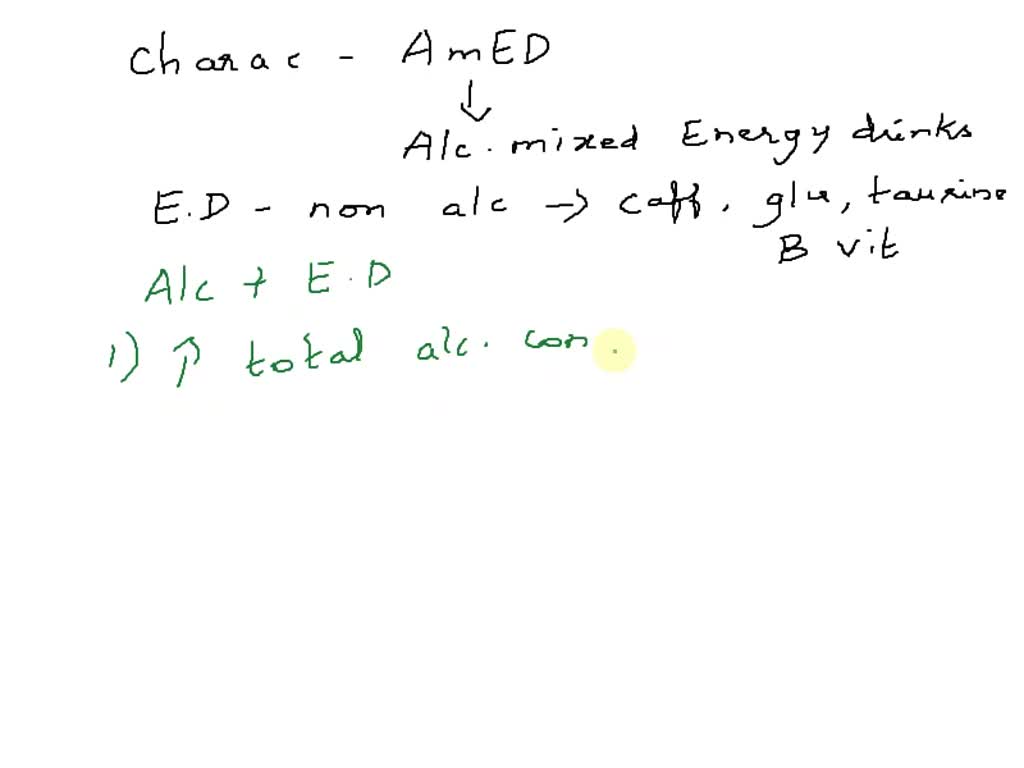 Charac - AmED
↓
Alc. mixed Energy drinks
E.D - non alc → caff, glu, taurine
B vit
Alc + E.D
1) ↑ total alc. con.